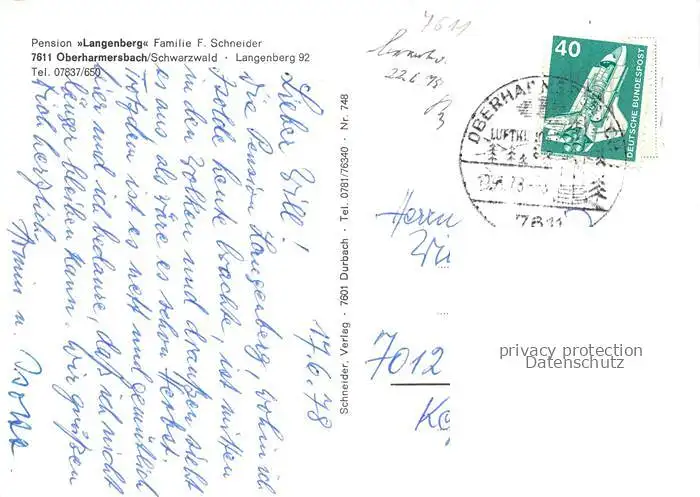 Pension »Langenberg« Familie F. Schneider
7611 Oberharmersbach/Schwarzwald · Langenberg 92
Tel. 07837/650
17.6.78
Lieber Willi!
Die Pension Langenberg, wohin ich
Isolde heute brachte, ist mitten
in den Wolken und draußen sieht
es aus als wäre es schon Herbst.
Trotzdem ist es nett und gemütlich
hier und ich bedaure, daß ich nicht
länger bleiben kann. Wir grüßen
Dich herzlich
Armin u. Isolde
Schneider, Verlag · 7601 Durbach · Tel. 0781/76340 · Nr. 748
7611
22.6.78
40
DEUTSCHE BUNDESPOST
OBERHARMERS
LUFTKU
7611
Herrn
Wi
7012
privacy protection
Datenschutz